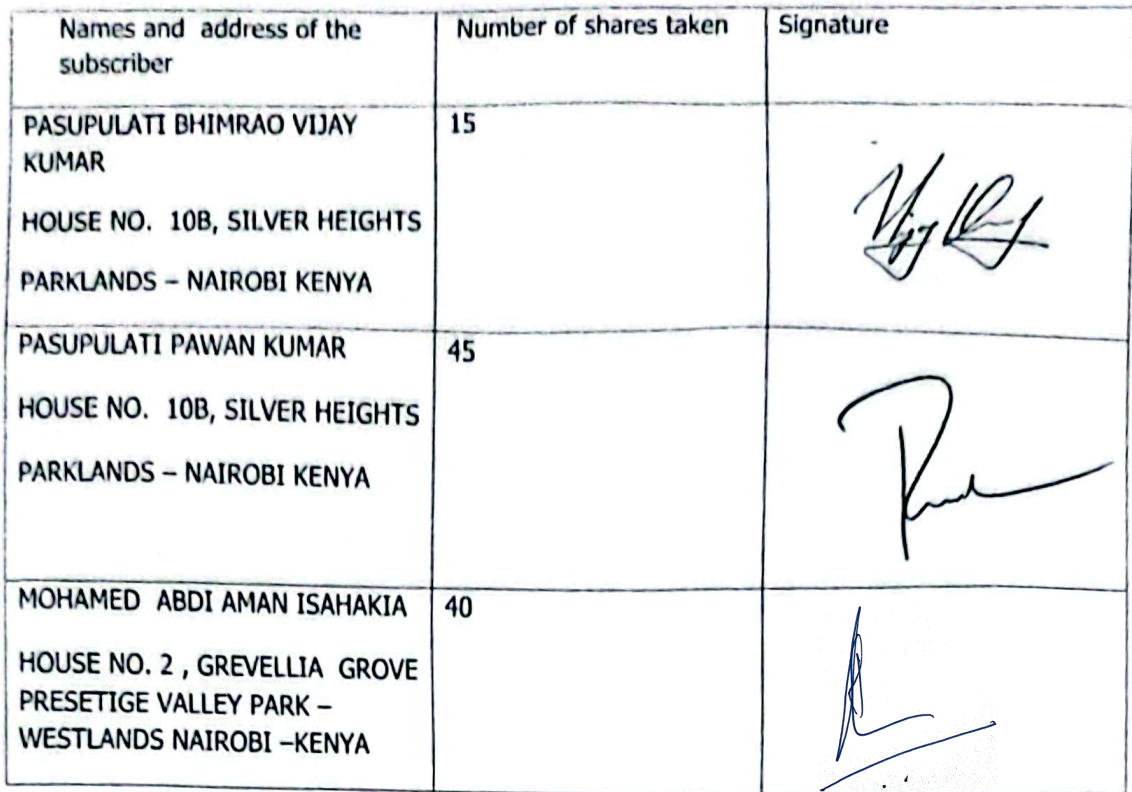 Names and address of the
subscriber
Number of shares taken
Signature
PASUPULATI BHIMRAO VIJAY
KUMAR
HOUSE NO. 10B, SILVER HEIGHTS
PARKLANDS – NAIROBI KENYA
15
PASUPULATI PAWAN KUMAR
HOUSE NO. 10B, SILVER HEIGHTS
PARKLANDS – NAIROBI KENYA
45
MOHAMED ABDI AMAN ISAHAKIA
HOUSE NO. 2 , GREVELLIA GROVE
PRESETIGE VALLEY PARK –
WESTLANDS NAIROBI –KENYA
40